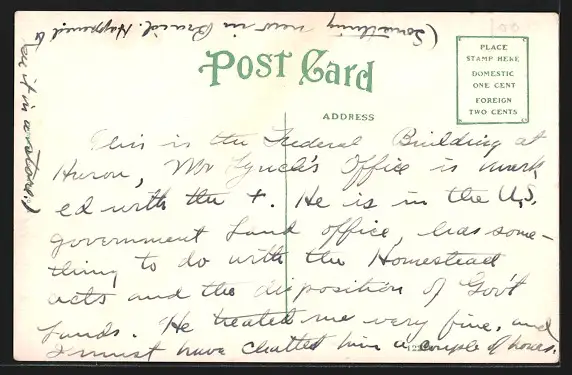 (Something new in Braid. Happened to
see it in a store.)
POST CARD
PLACE
STAMP HERE
DOMESTIC
ONE CENT
FOREIGN
TWO CENTS
ADDRESS
This is the Federal Building at
Huron, Mr Lynch's Office is mark
ed with the +. He is in the U.S.
government Land office, has some-
thing to do with the Homestead
acts and the disposition of Gov't
Lands. He treated me very fine, and
I must have chatted him a couple of hours.